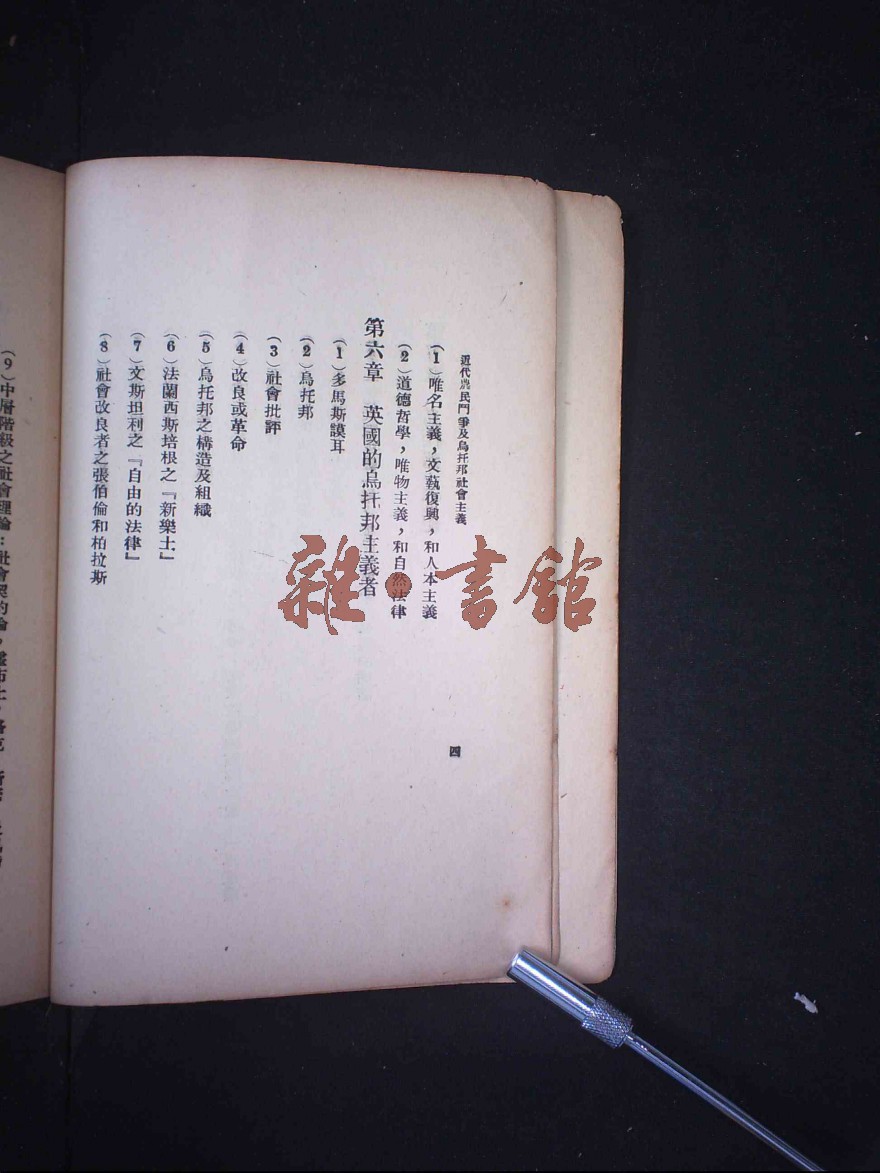 近代農民鬥爭及烏托邦社會主義
四
(1)唯名主義，文藝復興，和人本主義
(2)道德哲學，唯物主義，和自然法律
第六章 英國的烏托邦主義者
(1)多馬斯謨耳
(2)烏托邦
(3)社會批評
(4)改良或革命
(5)烏托邦之構造及組織
(6)法蘭西斯培根之『新樂土』
(7)文斯坦利之『自由的法律』
(8)社會改良者之張伯倫和柏拉斯
(9)中層階級之社會理論：社會契約論，
雜·書館